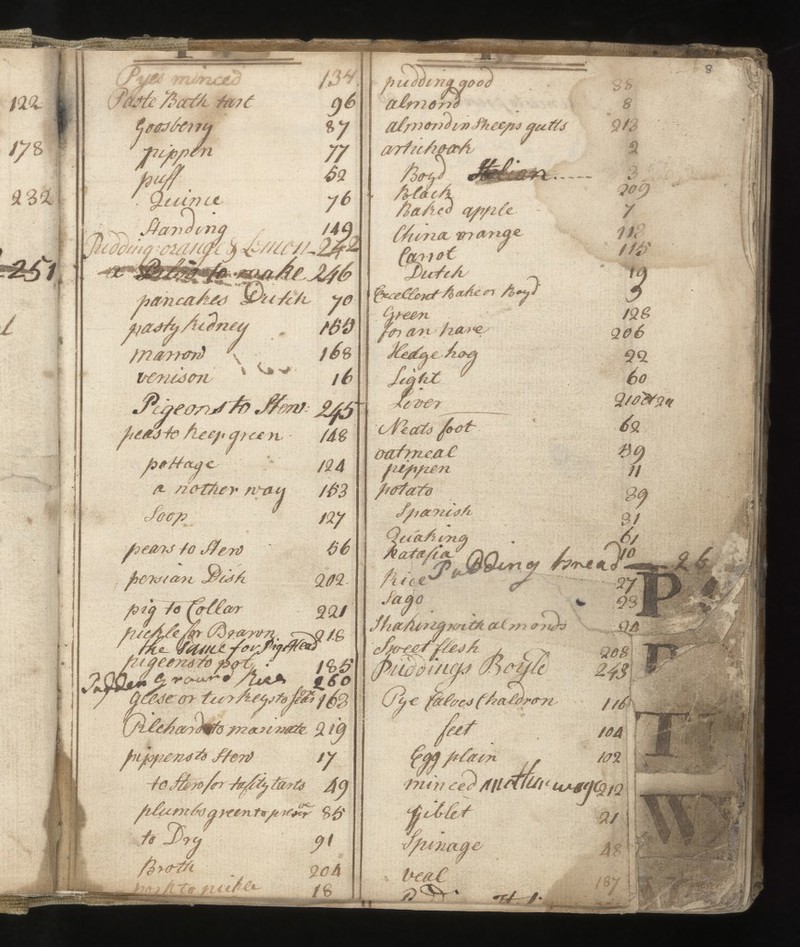 122
178
232
251
Pyes minced 134
Paste Bath tart 96
Goosberry 87
pippen 77
puff 52
Quince 76
Standing 149
Pudding orange & Lemon 242
to make 246
pancakes Dutch 70
pasty kidney 155
marrow 168
venison 16
Pigeons to Stew 245
peas to keep green 148
pottage 124
a nother way 153
Soop 127
pears to Stew 56
persian Dish 202
pig to Collar 221
pickle for Brawn 218
the Same for Pigs Head
pigeons to pot 185
Ground Rice 260
Geese or turkeys to 163
Pilchard to marinate 219
pippens to Stew 17
to Stew for tarts 49
plumbs green to preser 85
to Dry 91
Broth 204
pork to pickle 18
8
pudding good 88
almond 8
almond in Sheeps gutts 213
artichoak 2
Boyd Italian 3
Black 209
Baked apple 7
China orange 112
Carrot 115
Dutch 19
Excellent Bake or Boyd 9
Green 128
for an hare 206
Hedge hog 22
Light 60
Liver 210
Neats foot 62
oatmeal 59
peppen 11
potato 89
Spanish 81
Quaking 61
Ratafia 10
Pudding bread 26
Rice 27
Sago 23
Shaking with almonds 24
Sweet flesh 208
Puddings Boyld 243
Pye Calves Chaldron 116
feet 104
Egg plain 102
minced another waye 212
Giblet 21
Spinage 48
veal 187
P
T
W